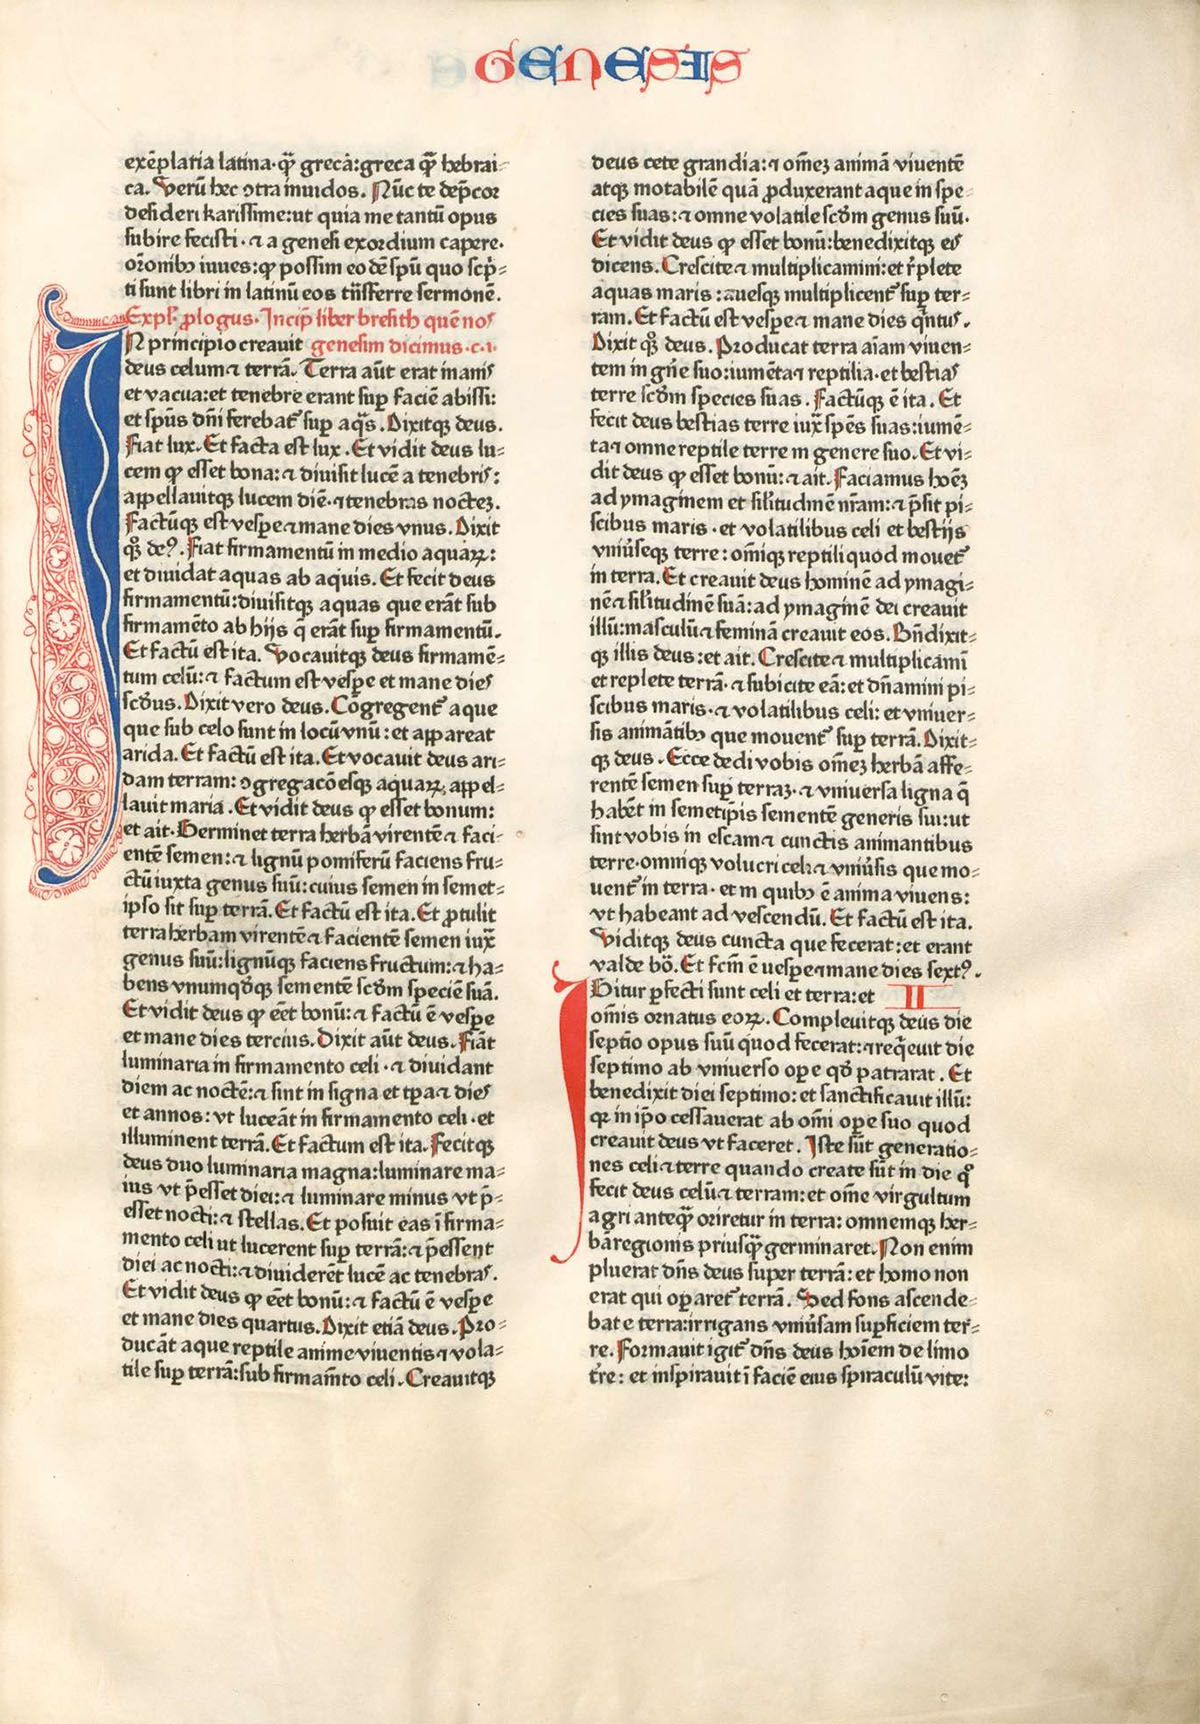 GENESIS
exẽplaria latina·qꝫ̃ greca:greca qꝫ̃ hebrai⸗
ca. Verũ hec ↄtra inuidos. Nũc te dep̃cor
desideri karissime:ut quia me tantũ opus
subire fecisti·⁊ a genesi exordium capere·
or̃onibꝰ iuues:ꝙ possim eodẽ sp̃u quo scp̃⸗
ti sunt libri in latinũ eos trñsferre sermonẽ.
Expl̃· ꝓlogus· Incip̃ liber bresith quẽ nos
IN principio creauit genesim dicimus·c·i·
deus celum ⁊ terrã. Terra aũt erat inanis
et vacua:et tenebre erant suꝑ faciẽ abissi:
et sp̃us dñi ferebat᷑ suꝑ aq̃s. Dixitqꝫ deus.
Fiat lux. Et facta est lux. Et vidit deus lu⸗
cem ꝙ esset bona:⁊ diuisit lucẽ a tenebris:
appellauitqꝫ lucem diẽ·⁊ tenebras noctez.
Factũqꝫ est vesꝑe ⁊ mane dies vnus. Dixit
qꝫ̊ deꝰ. Fiat firmamentũ in medio aquaꝝ:
et diuidat aquas ab aquis. Et fecit deus
firmamentũ:diuisitqꝫ aquas que erãt sub
firmamẽto ab hijs q̃ erãt suꝑ firmamentũ.
Et factũ est ita. Vocauitqꝫ deus firmamẽ⸗
tum celũ:⁊ factum est vesꝑe et mane dies
scd̃us. Dixit vero deus. Cõgregent᷑ aque
que sub celo sunt in locũ vnũ:et appareat
arida. Et factũ est ita. Et vocauit deus ari⸗
dam terram:ↄgregacõesqꝫ aquaꝝ, appel⸗
lauit maria. Et vidit deus ꝙ esset bonum:
et ait. Germinet terra herbã virentẽ ⁊ faci⸗
entẽ semen:⁊ lignũ pomiferũ faciens fru⸗
ctũ iuxta genus suũ:cuius semen in semet⸗
ipso sit suꝑ terrã. Et factũ est ita. Et ꝓtulit
terra herbam virentẽ ⁊ facientẽ semen iux̃
genus suũ:lignũqꝫ faciens fructum:⁊ ha⸗
bens vnumqd̃qꝫ sementẽ scd̃m speciẽ suã.
Et vidit deus ꝙ eẽt bonũ:⁊ factũ ẽ vesꝑe
et mane dies tercius. Dixit aũt deus. Fiãt
luminaria in firmamento celi·⁊ diuidant
diem ac noctẽ:⁊ sint in signa et tp̃a ⁊ dies
et annos:vt luceãt in firmamento celi·et
illuminent terrã. Et factum est ita. Fecitqꝫ
deus duo luminaria magna:luminare ma⸗
ius vt p̃esset diei:⁊ luminare minus vt p̃⸗
esset nocti:⁊ stellas. Et posuit eas ĩ firma⸗
mento celi ut lucerent suꝑ terrã:⁊ p̃essent
diei ac nocti:⁊ diuiderẽt lucẽ ac tenebras.
Et vidit deus ꝙ eẽt bonũ:⁊ factũ ẽ vesꝑe
et mane dies quartus. Dixit etiã deus. Pro⸗
ducãt aque reptile anime viuentis ⁊ vola⸗
tile suꝑ terrã:sub firmam̃to celi. Creauitqꝫ
deus cete grandia:⁊ om̃ez animã viuentẽ
atqꝫ motabilẽ quã ꝓduxerant aque in spe⸗
cies suas:⁊ omne volatile scd̃m genus suũ.
Et vidit deus ꝙ esset bonũ:benedixitqꝫ eis
dicens. Crescite ⁊ multiplicamini:et r̃plete
aquas maris:auesqꝫ multiplicent᷑ suꝑ ter⸗
ram. Et factũ est vesꝑe ⁊ mane dies q̃ntus.
Dixit qꝫ̊ deus. Producat terra aĩam viuen⸗
tem in gñe suo:iumẽta ⁊ reptilia·et bestias
terre scd̃m species suas. Factũqꝫ ẽ ita. Et
fecit deus bestias terre iux̃ sp̃es suas:iumẽ⸗
ta ⁊ omne reptile terre in genere suo. Et vi⸗
dit deus ꝙ esset bonũ:⁊ ait. Faciamus hoĩez
ad ymaginem et sil̃itudinẽ nr̃am:⁊ p̃sit pi⸗
scibus maris·et volatilibus celi et bestijs
vniũseqꝫ terre:om̃iqꝫ reptili quod mouet᷑
in terra. Et creauit deus hominẽ ad ymagi⸗
nẽ ⁊ sil̃itudinẽ suã:ad ymaginẽ dei creauit
illũ:masculũ ⁊ feminã creauit eos. Bñdixit⸗
qꝫ illis deus:et ait. Crescite ⁊ multiplicamĩ
et replete terrã·⁊ subicite eã:et dñamini pi⸗
scibus maris·⁊ volatilibus celi:et vniuer⸗
sis animãtibꝰ que mouent᷑ suꝑ terrã. Dixit⸗
qꝫ deus. Ecce dedi vobis om̃ez herbã affe⸗
rentẽ semen suꝑ terraz·⁊ vniuersa ligna q̃
habẽt in semetip̃is sementẽ generis sui:ut
sint vobis in escam ⁊ cunctis animantibus
terre·omniqꝫ volucri celi ⁊ vniũsis que mo⸗
uent᷑ in terra·et in quibꝰ ẽ anima viuens:
vt habeant ad vescendũ. Et factũ est ita.
Viditqꝫ deus cuncta que fecerat:et erant
valde bõ. Et fcm̃ ẽ uesꝑe ⁊ mane dies sextꝰ.
IGitur ꝑfecti sunt celi et terra:et II
om̃is ornatus eoꝝ. Compleuitqꝫ deus die
septĩo opus suũ quod fecerat:⁊ req̃euit die
septimo ab vniuerso oꝑe qd̃ patrarat. Et
benedixit diei septimo:et sanctificauit illũ:
qꝛ in ip̃o cessauerat ab om̃i oꝑe suo quod
creauit deus vt faceret. Iste sũt generatio⸗
nes celi ⁊ terre quando create sũt in die qꝫ̊
fecit deus celũ ⁊ terram:et om̃e virgultum
agri anteqꝫ̃ oriretur in terra:omnemqꝫ her⸗
bã regionis priusqꝫ̃ germinaret. Non enim
pluerat dñs deus super terrã:et homo non
erat qui oꝑaret᷑ terrã. Sed fons ascende⸗
bat e terra:irrigans vniũsam suꝑficiem ter⸗
re. Formauit igit᷑ dñs deus hoĩem de limo
tr̃e:et inspirauit ĩ faciẽ eius spiraculũ vite: